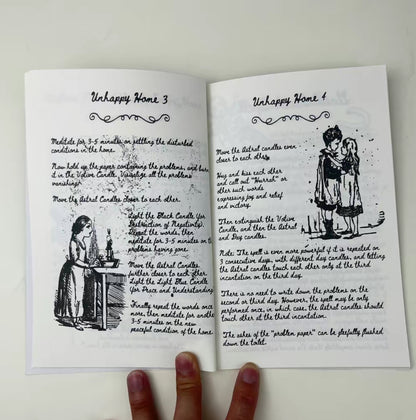 Unhappy Home 3
Meditate for 3-5 minutes on settling the disturbed
conditions in the home.
Now hold up the paper containing the problems, and burn
it in the Votive Candle. Visualize all the problems
vanishing.
Move the Astral Candles closer to each other.
Light the Black Candle (for
Destruction of Negativity).
Repeat the words, then
meditate for 3-5 minutes on
problems having gone.
Move the Astral Candles
further closer to each other.
Light the Light Blue Candle
(for Peace and Understanding).
Finally repeat the words once
more, then meditate for another
3-5 minutes on the new
peaceful condition of the home.
Unhappy Home 4
Move the Astral candles even
closer to each other.
Hug and kiss each other
and call out "Hurrah" or
other such words
expressing joy and relief
and victory.
Then extinguish the Votive
Candle, and then the Astral
and Day candles.
Note: The spell is even more powerful if it is repeated on
3 consecutive days, with different day candles, and letting
the Astral candles touch each other only at the third
incantation on the third day.
There is no need to write down the problems on the
second or third day. However, the spell may be only
performed once, in which case, the Astral candles should
touch other at the third incantation.
The ashes of the "problem paper" can be gleefully flushed
down the toilet.